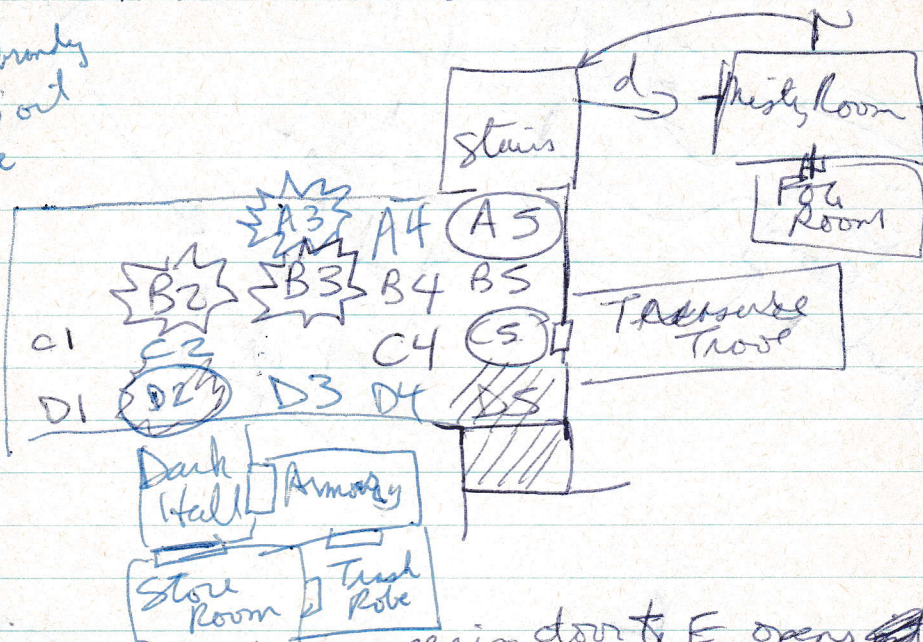 out
d
N
Stairs
Misty Room
Fog
Room
A3 A4 A5
B2 B3 B4 B5
C1 C2 C4 C5
D1 D2 D3 D4 D5
Treasure
Trove
Dark
Hall
Armory
Store
Room
Trash
Robe
door to E opens